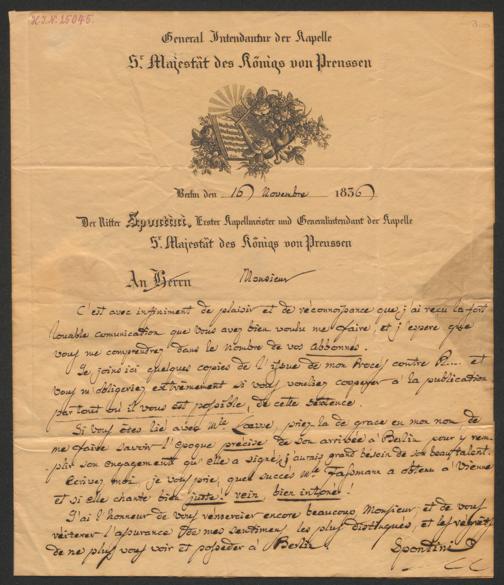 H.I.N. 25045.
General Intendantur der Kapelle
Sr. Majestät des Königs von Preussen
Berlin den 16 Novembre 1836
Der Ritter Spontini, Erster Kapellmeister und Generalintendant der Kapelle
Sr. Majestät des Königs von Preussen
An Herrn Monsieur
C'est avec infiniment de plaisir et de réconnoissance que j'ai reçu la fort
louable comunication que vous avez bien voulu me faire, et j'espere que
vous me comprendrez dans le nombre de vos abbonnés.
Je joins ici quelques copies de l'issue de mon Procès contre R... et
vous m'obligeriez extrêmement si vous vouliez cooperer à la publication
partout où il vous est possible, de cette sentence.
Si vous êtes lié avec Mlle Löwe, priez-la de grace en mon nom de
me faire savoir l'époque précise de son arrivée à Berlin pour y rem
plir son engagement qu'elle a signé; j'aurais grand besoin de son beau talent.
Ecrivez-moi, je vous prie, quel succès Mlle Fassmann a obtenu à Vienne
et si elle chante bien juste! rein, bien intoné!
J'ai l'honneur de vous remercier encore beaucoup, Monsieur, et de vous
réiterer l'assurance de mes sentimens les plus distingués, et les regrets
de ne plus vous voir et posseder à Berlin.
Spontini